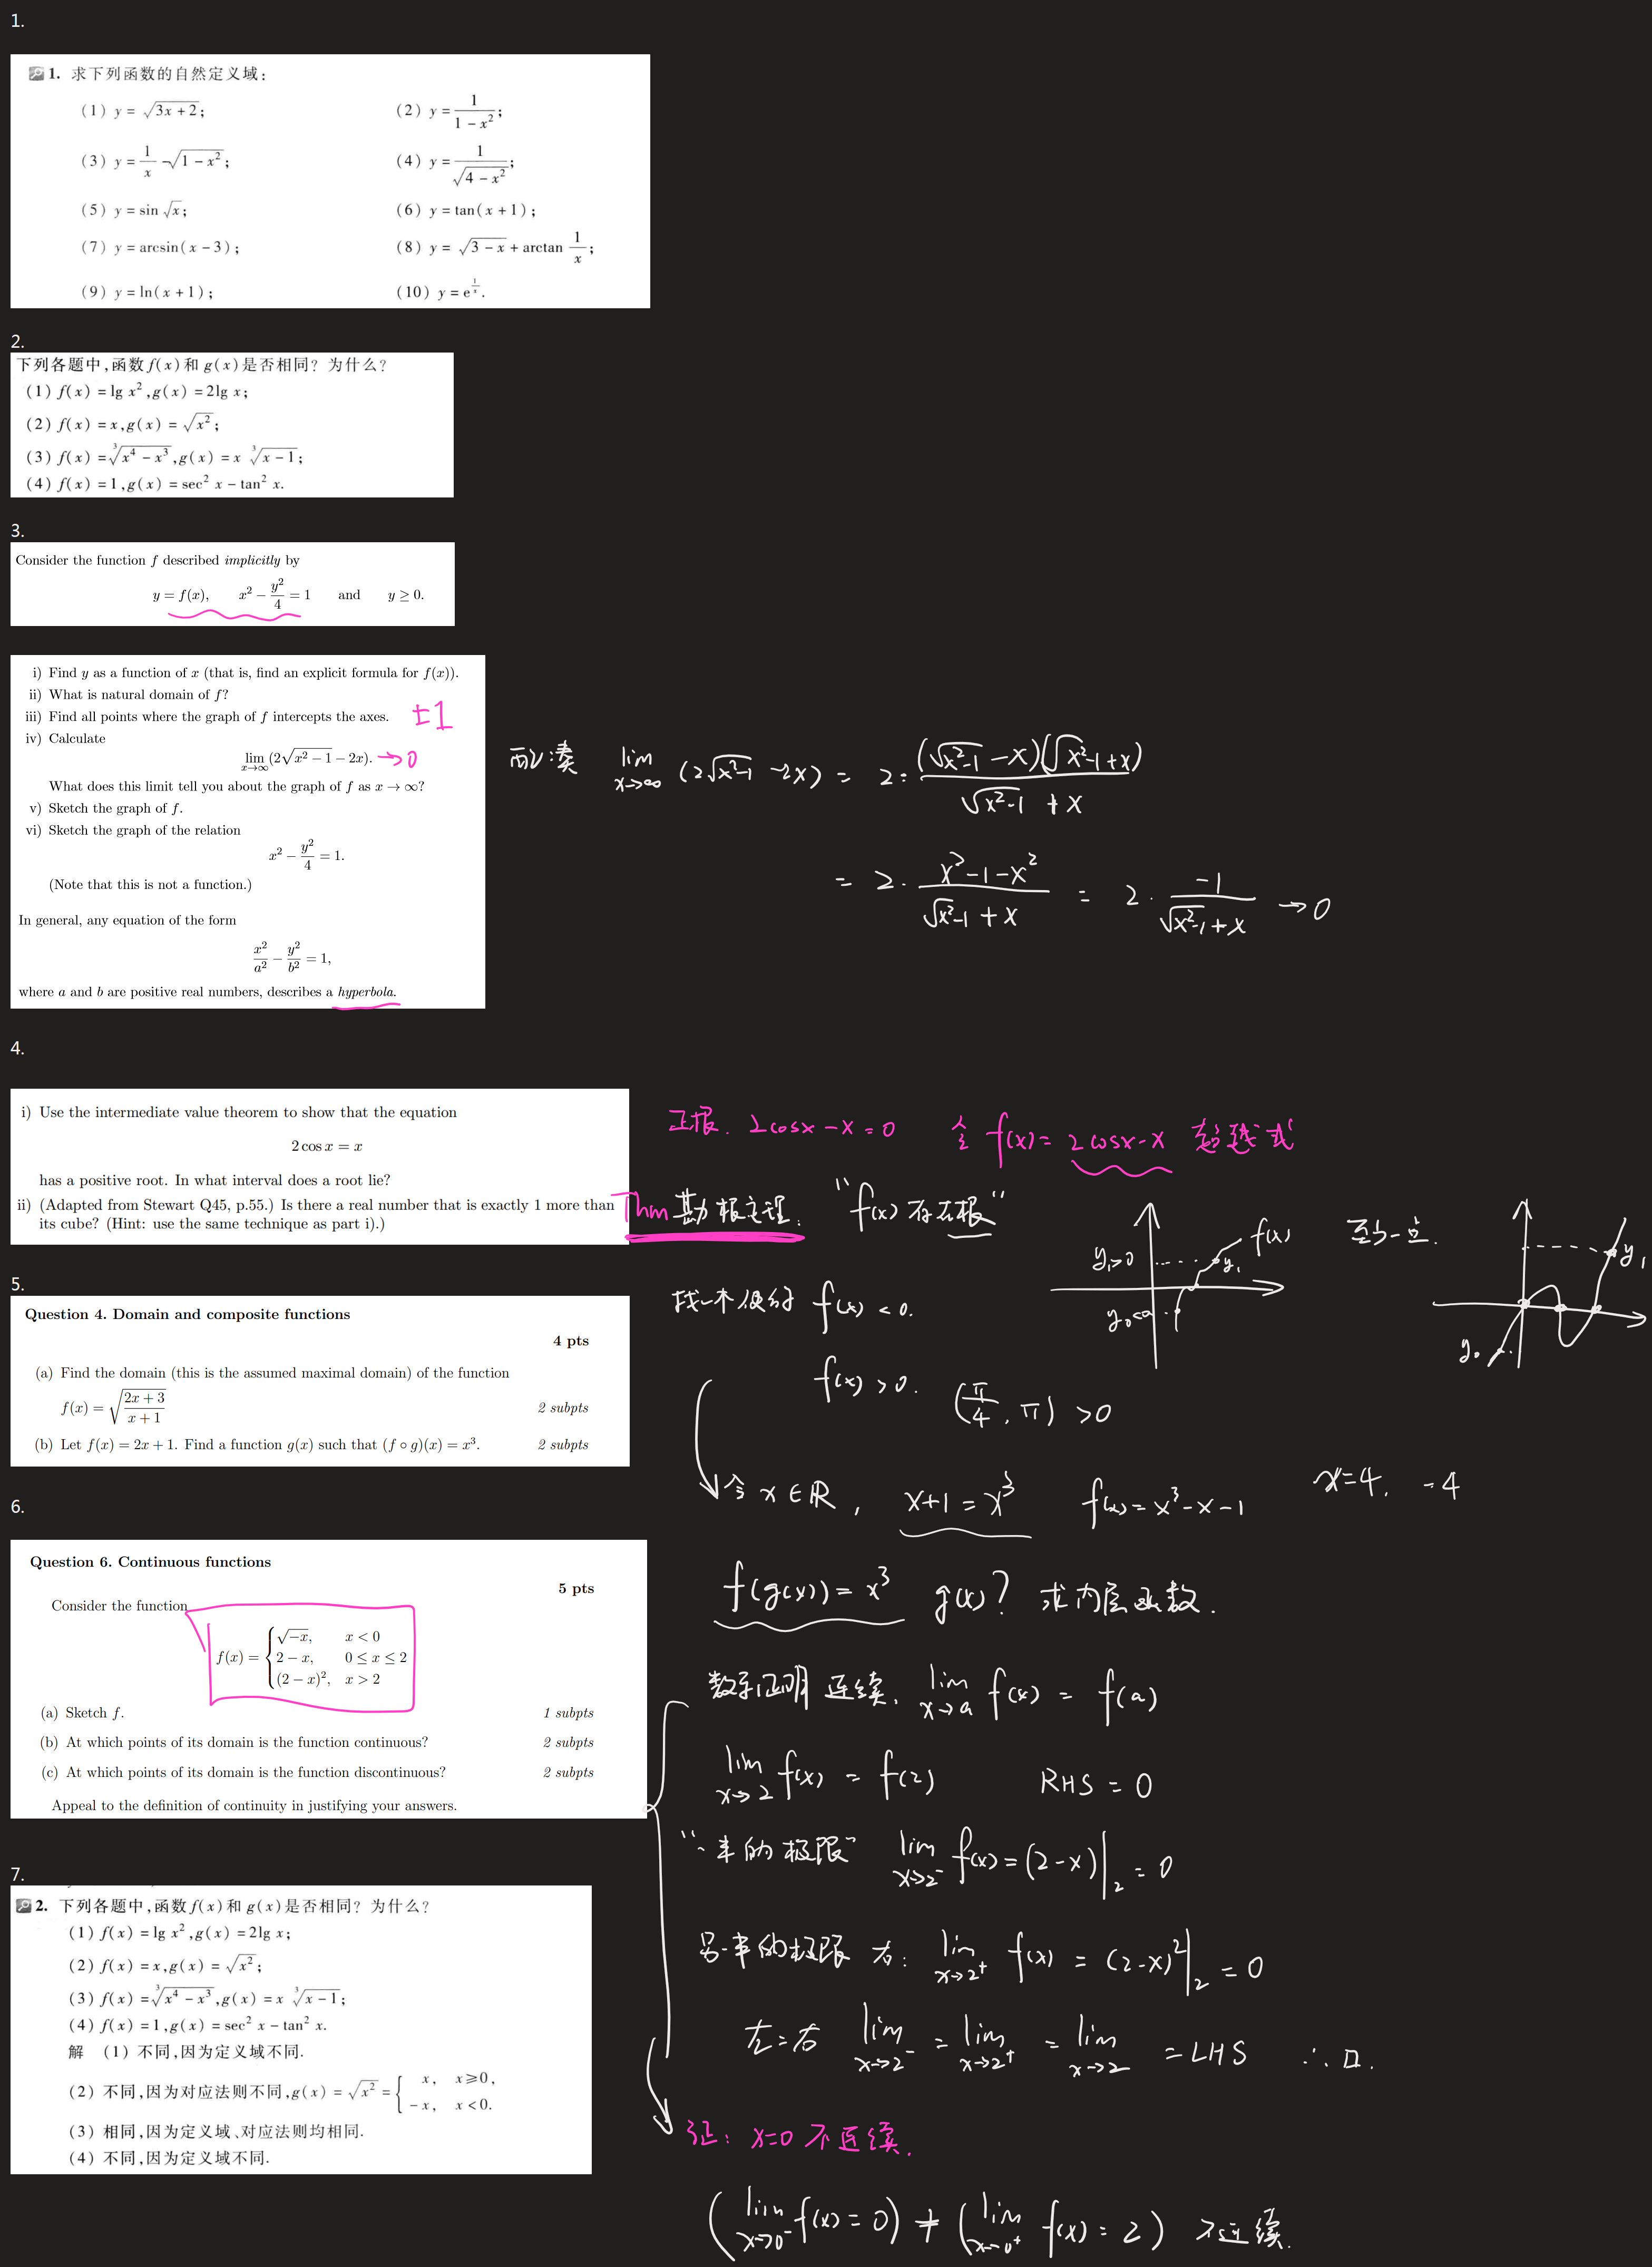 1.
1. 求下列函数的自然定义域:
(1) y = √(3x + 2);
(2) y = 1/(1 - x²);
(3) y = 1/x - √(1 - x²);
(4) y = 1/√(4 - x²);
(5) y = sin √x;
(6) y = tan(x + 1);
(7) y = arcsin(x - 3);
(8) y = √(3 - x) + arctan 1/x;
(9) y = ln(x + 1);
(10) y = e^(1/x).
2.
下列各题中,函数 f(x) 和 g(x) 是否相同? 为什么?
(1) f(x) = lg x², g(x) = 2lg x;
(2) f(x) = x, g(x) = √(x²);
(3) f(x) = ∛(x⁴ - x³), g(x) = x ∛(x - 1);
(4) f(x) = 1, g(x) = sec² x - tan² x.
3.
Consider the function f described implicitly by
y = f(x), x² - y²/4 = 1 and y ≥ 0.
i) Find y as a function of x (that is, find an explicit formula for f(x)).
ii) What is natural domain of f?
iii) Find all points where the graph of f intercepts the axes. ±1
iv) Calculate
lim x→∞ (2√(x² - 1) - 2x). →0
What does this limit tell you about the graph of f as x → ∞?
v) Sketch the graph of f.
vi) Sketch the graph of the relation
x² - y²/4 = 1.
(Note that this is not a function.)
In general, any equation of the form
x²/a² - y²/b² = 1,
where a and b are positive real numbers, describes a hyperbola.
lim x→∞ (2√(x²-1) -2x) = 2· (√(x²-1) - x)(√(x²-1) + x) / (√(x²-1) + x)
= 2· (x²-1-x²)/(√(x²-1) + x) = 2· -1/(√(x²-1) + x) → 0
4.
i) Use the intermediate value theorem to show that the equation
2 cos x = x
has a positive root. In what interval does a root lie?
ii) (Adapted from Stewart Q45, p.55.) Is there a real number that is exactly 1 more than
its cube? (Hint: use the same technique as part i).)
正根. 2cosx - x = 0 令 f(x) = 2cosx - x 超越式
Thm 勘根定理: "f(x) 存在根"
y₁>0
y₁
f(x)
y₀<0
至少一点.
y₁
y₀
找一个使得 f(x) < 0.
f(x) > 0. (π/4, π) >0
令 x ∈ ℝ, x+1 = x³ f(x) = x³-x-1 x=4, -4
5.
Question 4. Domain and composite functions
4 pts
(a) Find the domain (this is the assumed maximal domain) of the function
f(x) = √((2x + 3)/(x + 1)) 2 subpts
(b) Let f(x) = 2x + 1. Find a function g(x) such that (f ∘ g)(x) = x³. 2 subpts
f(g(x)) = x³ g(x)? 求内层函数.
6.
Question 6. Continuous functions
5 pts
Consider the function
f(x) = { √(-x), x < 0
2 - x, 0 ≤ x ≤ 2
(2 - x)², x > 2
(a) Sketch f. 1 subpts
(b) At which points of its domain is the function continuous? 2 subpts
(c) At which points of its domain is the function discontinuous? 2 subpts
Appeal to the definition of continuity in justifying your answers.
数学证明 连续. lim x→a f(x) = f(a)
lim x→2 f(x) = f(2) RHS = 0
"一半的极限" lim x→2⁻ f(x) = (2-x)|₂ = 0
另一半的极限 右: lim x→2⁺ f(x) = (2-x)²|₂ = 0
左=右 lim x→2⁻ = lim x→2⁺ = lim x→2 = LHS ∴ □.
证: x=0 不连续.
(lim x→0⁻ f(x) = 0) ≠ (lim x→0⁺ f(x) = 2) 不连续.
7.
2. 下列各题中,函数 f(x) 和 g(x) 是否相同? 为什么?
(1) f(x) = lg x², g(x) = 2lg x;
(2) f(x) = x, g(x) = √(x²);
(3) f(x) = ∛(x⁴ - x³), g(x) = x ∛(x - 1);
(4) f(x) = 1, g(x) = sec² x - tan² x.
解 (1) 不同,因为定义域不同.
(2) 不同,因为对应法则不同, g(x) = √(x²) = { x, x≥0,
-x, x<0.
(3) 相同,因为定义域、对应法则均相同.
(4) 不同,因为定义域不同.